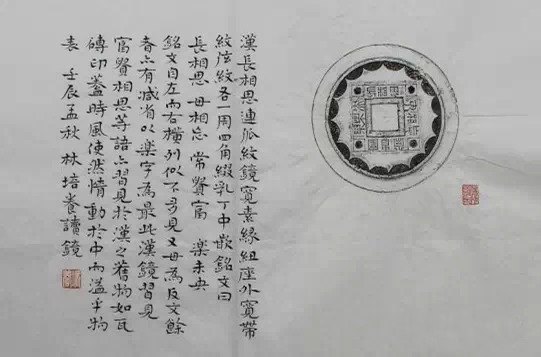 漢長相思連弧紋鏡寬素緣紐座外寬帶
紋弦紋各一周四角綴乳丁中嵌銘文曰
長相思 毋相忘 常貴富 楽未央
銘文自左而右橫列似不多見又毋為反文餘
者亦有減省以楽字為最此漢鏡習見
富貴相思等語亦習見於漢之舊物如瓦
磚印蓋時風使然情動於中而溢乎物
表 壬辰孟秋 林培養讀鏡